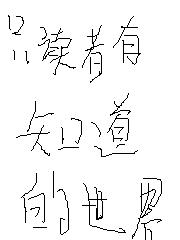 只读者有
知道
的世界